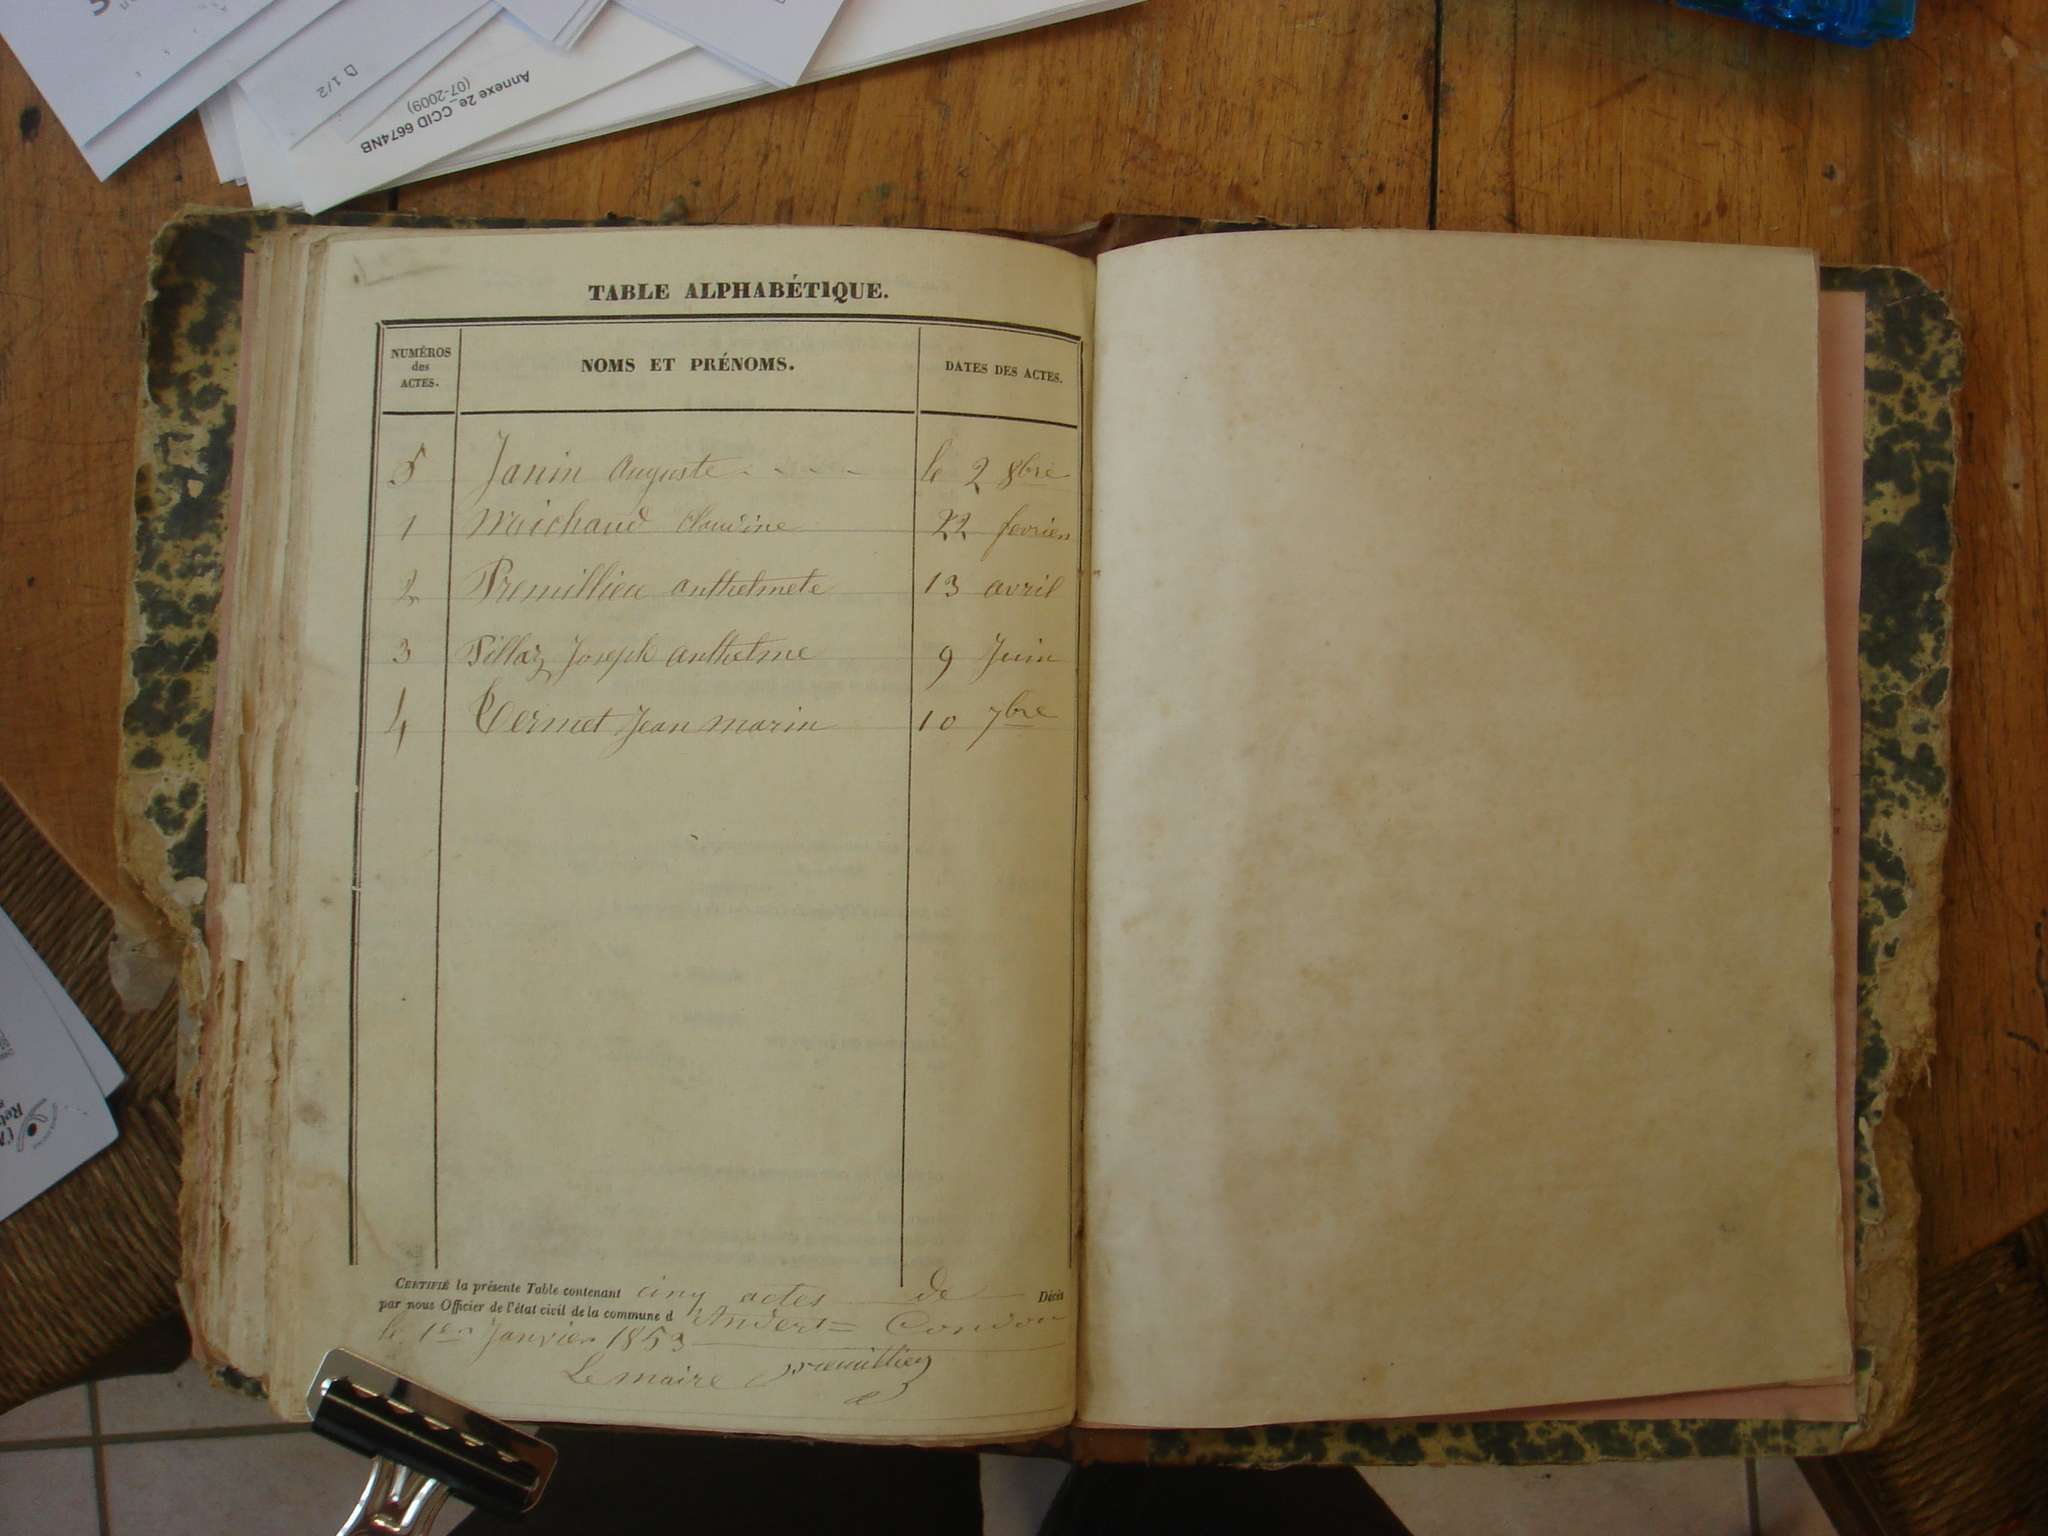 D 1/2
Annexe 2e_CCID 6674NB
(07-2009)
TABLE ALPHABÉTIQUE.
NUMÉROS des ACTES. NOMS ET PRÉNOMS. DATES DES ACTES.
5 Janin Auguste le 2 8bre
1 Maichaud Claudine 22 fevrier
2 Premillieu anthelmete 13 avril
3 Pillaz Joseph anthelme 9 Juin
4 Vernet Jean marin 10 7bre
CERTIFIÉ la présente Table contenant cinq actes de Décès
par nous Officier de l'état civil de la commune d'Andert = Condon
le 1er Janvier 1853
Le maire premillieu